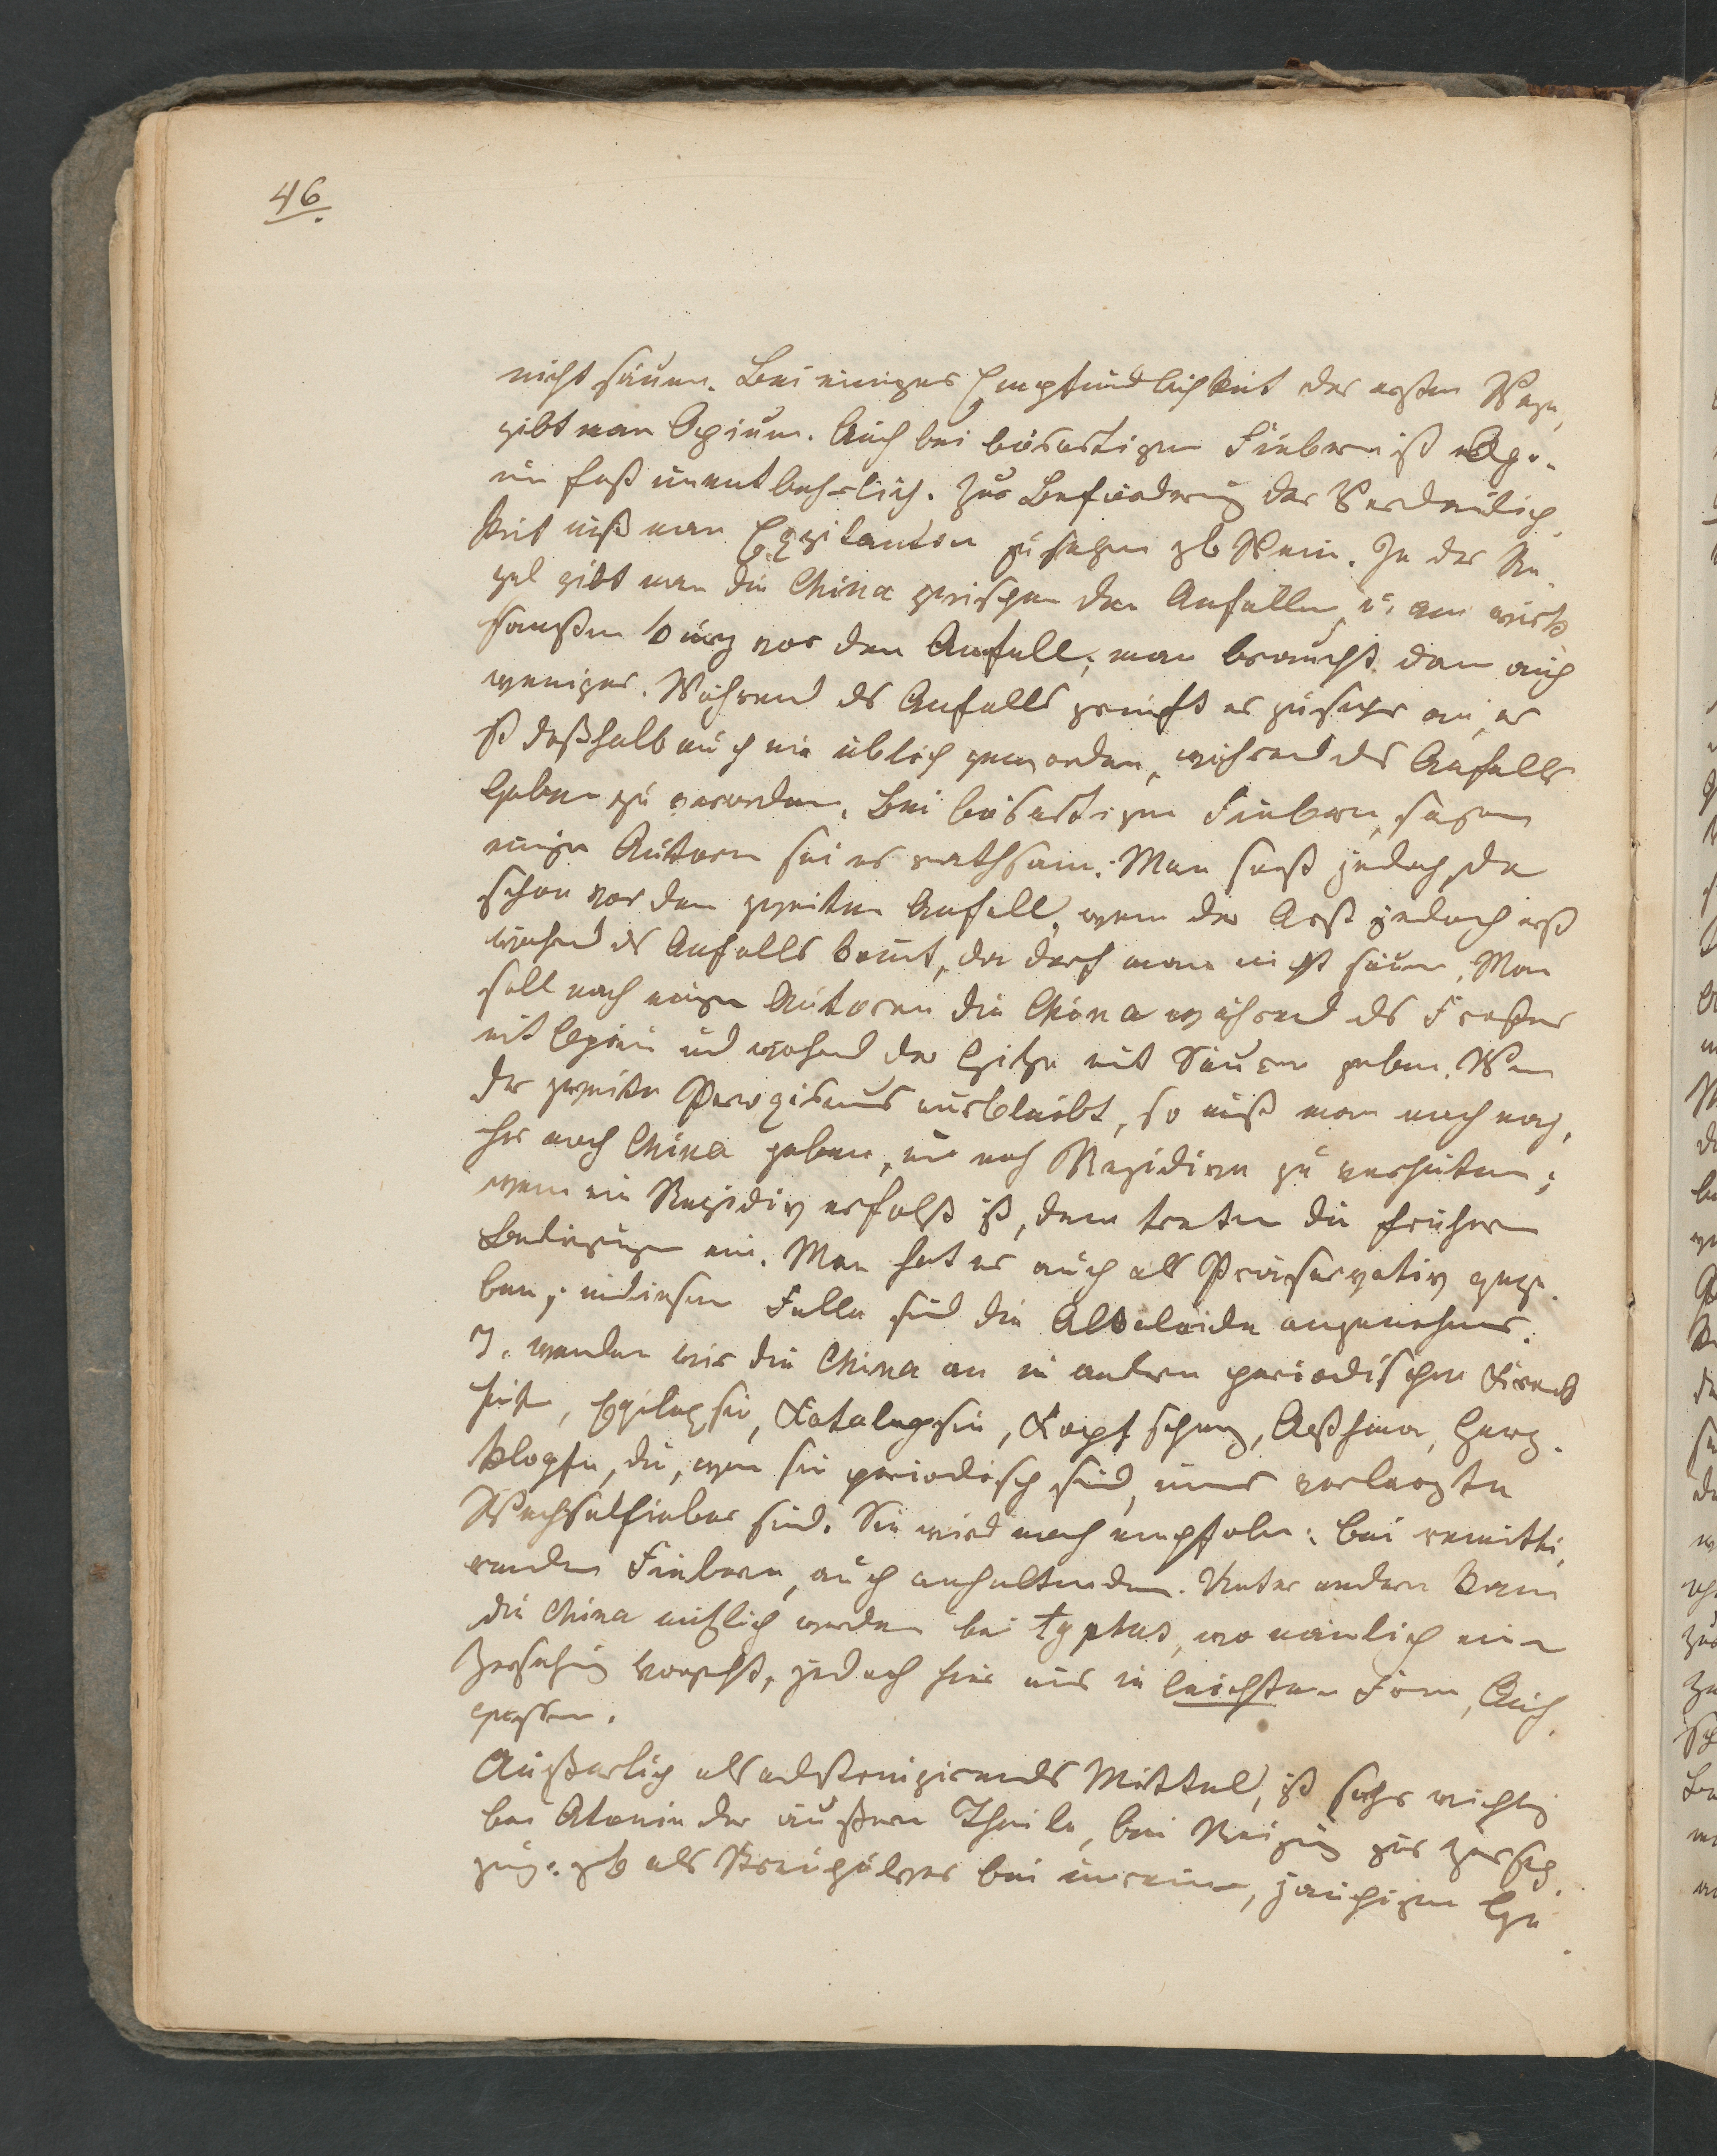 46.
nicht säumen. Bei einiger Empfindlichkeit der ersten Wege,
gibt man Opium. Auch bei bösartigen Fiebern ist Opi-
um fast unentbehrlich. Zur Beförderung der Verdaulich-
keit muß man Exzitantien zusetzen zb Wein. In der Re-
gel gibt man die China zwischen den Anfällen, u. am wirk-
samsten kurz vor dem Anfall; man braucht dann auch
weniger. Während ds Anfalls greift es zu sehr an, es
ist deßhalb auch nie üblich geworden, während des Anfalls
 zu verordnen. Bei bösartigen Fiebern, sagen
einige Autoren sei es rathsam. Man  jedoch, da
schon vor dem zweiten Anfall, wenn der Arzt jedoch erst
während ds Anfalls komt, da darf man nicht säumen. Man
soll nach einigen Autoren die China während ds Frostes
mit Opium und während der Hitze mit Säuren geben. Wenn
der zweite Paroxismus ausbleibt, so muß man noch nach-
her noch China geben, um noch Rezidive zu verhüten;
wenn ein Rezidiv erfolgt ist, dann treten die frühern
Bedingungen ein. Man hat es auch als Präservativ gege-
ben; in diesem Falle sind die Alkaloide angenehmer.
I. wenden wir die China an in andern periodischen Krank-
heiten, Epilepsie, Katalepsie, Kopfschmerz, Asthma, Herz-
klopfen, die, wenn sie periodisch sind, immer verlarvte
Wechselfieber sind. Sie wird noch empfolen: bei remitti-
renden Fiebern, auch anhaltenden. Unter andern kann
die China nützlich werden bei typhus, wo nämlich eine
Zersetzung vorgeht, jedoch hier nur in leichter Form, Auf-
güssen.
Äußerlich als adstringirendes Mittel, ist sehr wichtig
bei Atonie der äußern Theile, bei Neigung zur Zerset-
zung. zb als Streupulver bei unreinen, jauchigen Ge-